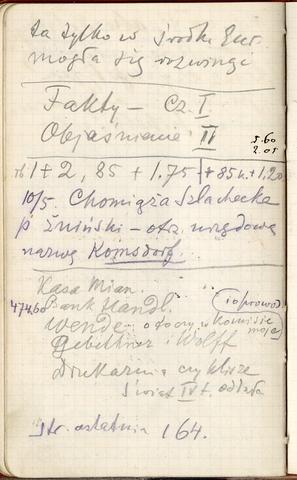 ta tylko w środk. Eur.
mogła się rozwinąć
Fakty – Cz. I
Objaśnienie II
5.60
2.05
1 + 2, 85 + 1.75 + 85 h. + 1,20
10/5. Chomiąża Szlachecka
p Żniński – otrz urzędową
nazwę Kornsdorf.
Kasa Mian.
474.60 Bank Handl.
Wende
Gebethner i Wolff
Drukarnia cyklisze
Świat IV t. odbita
str. ostatnia 164.